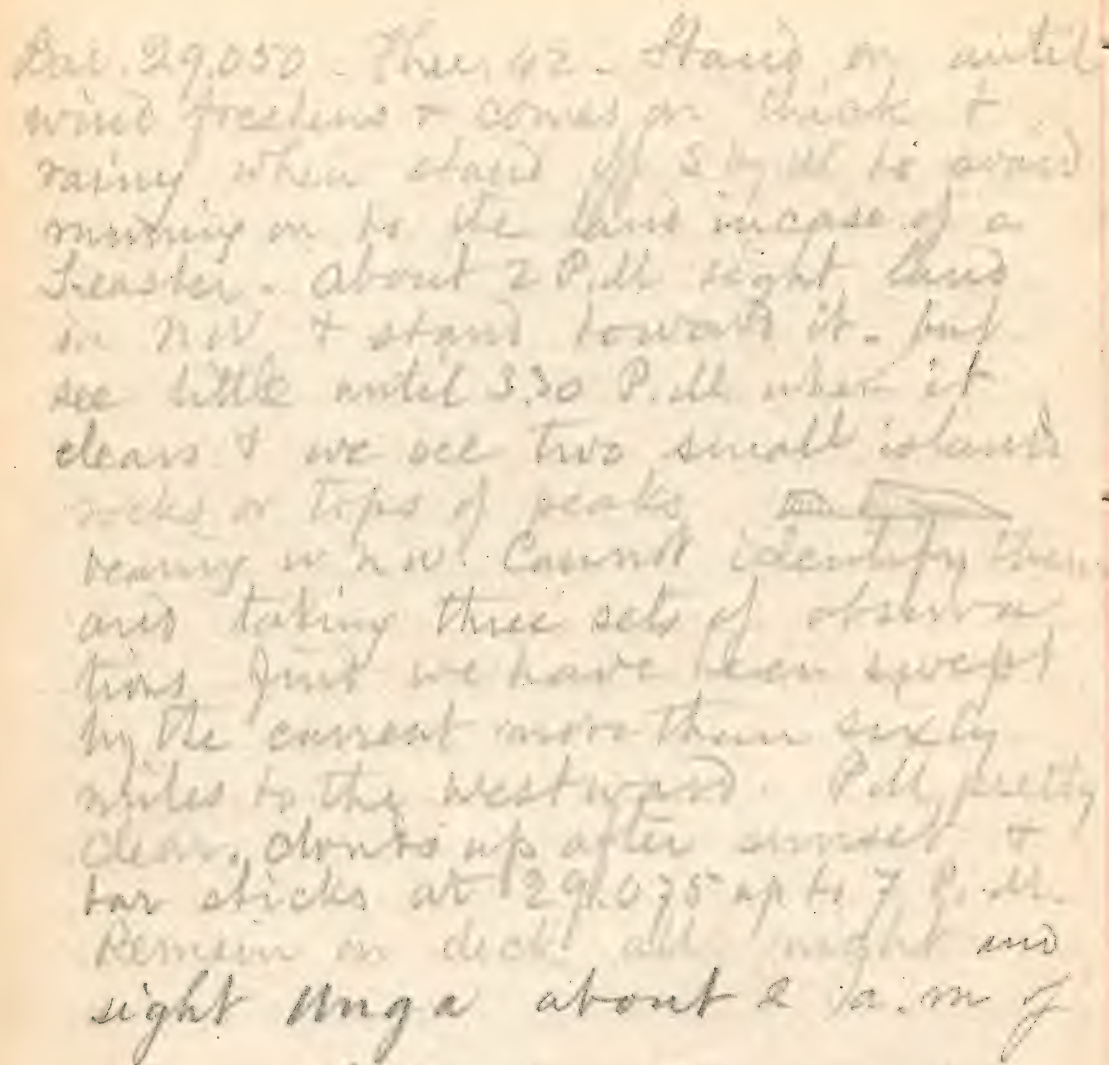 Bar. 29.050 - Ther. 42 - Stand on until
wind freshens & comes on thick &
rainy when stand off S by W to avoid
running on to the land incase of a
S.easter - About 2 P.M. sight land
in NW & stand toward it - but
see little until 3.30 P.M. when it
clears & we see two small islands
rocks or tops of peaks
bearing W N W. Cannot identify them
and taking three sets of observa
tions find we have been swept
by the current more than sixty
miles to the westward. P.M. pretty
clear, clouds up after sunset &
bar sticks at 29.075 up to 7 P.M.
Remain on deck all night and
sight Unga about 2 a.m of